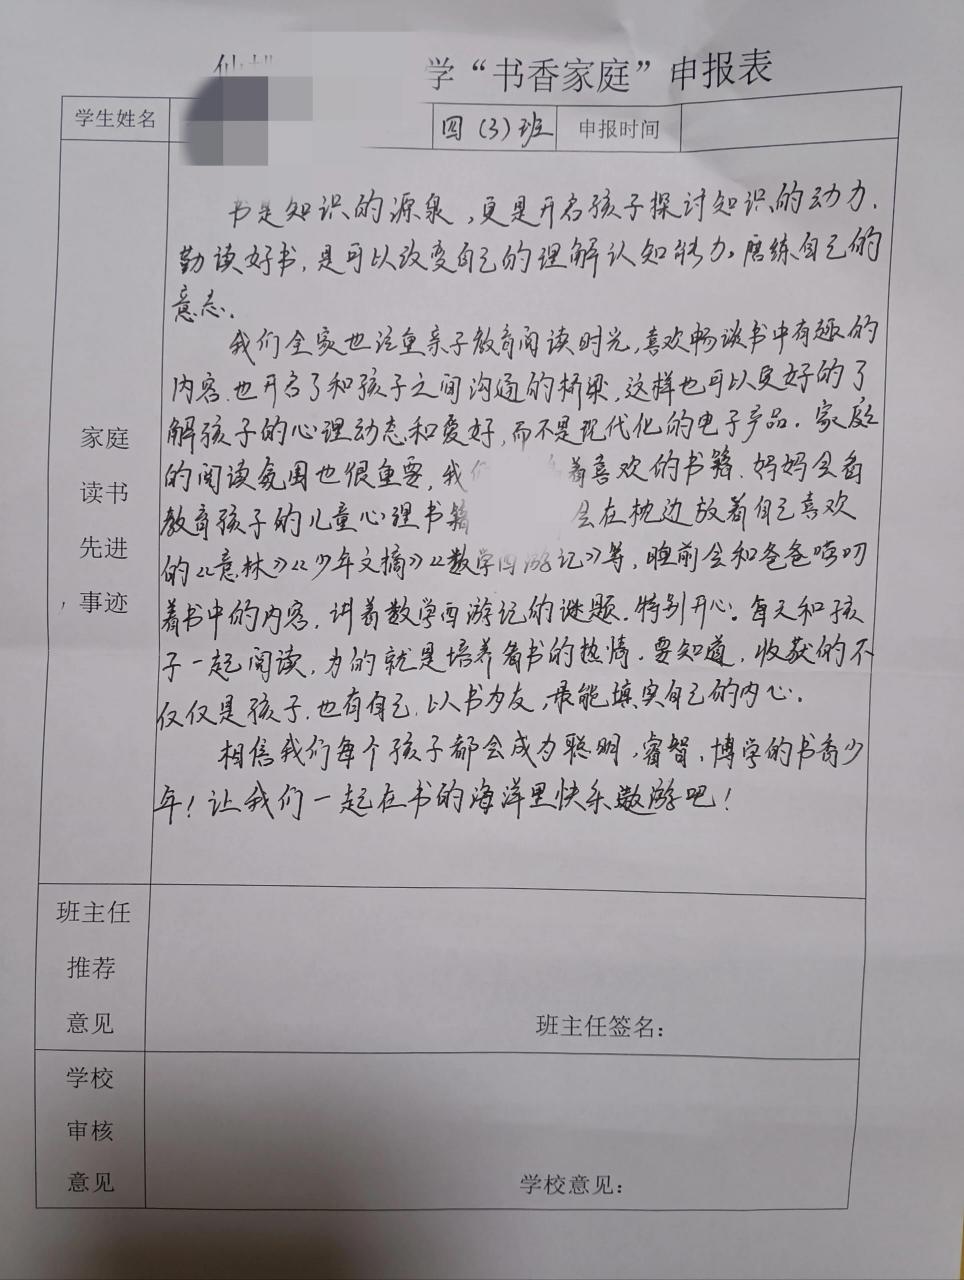 学“书香家庭”申报表
学生姓名
四(3)班 申报时间
家庭
读书
先进
事迹
书是知识的源泉,更是开启孩子探讨知识的动力.
勤读好书,是可以改变自己的理解认知能力。磨练自己的
意志.
我们全家也注重亲子教育阅读时光,喜欢畅谈书中有趣的
内容.也开启了和孩子之间沟通的桥梁,这样也可以更好的了
解孩子的心理动态和爱好,而不是现代化的电子产品.家庭
的阅读氛围也很重要,我们 着喜欢的书籍.妈妈会看
教育孩子的儿童心理书籍 会在枕边放着自己喜欢
的《意林》《少年文摘》《数学西游记》等,睡前会和爸爸唠叨
着书中的内容,讲着数学西游记的谜题.特别开心。每天和孩
子一起阅读,为的就是培养看书的热情.要知道,收获的不
仅仅是孩子.也有自己.以书为友,最能填实自己的内心.
相信我们每个孩子都会成为聪明,睿智,博学的书香少
年!让我们一起在书的海洋里快乐遨游吧!
班主任
推荐
意见
班主任签名:
学校
审核
意见
学校意见: